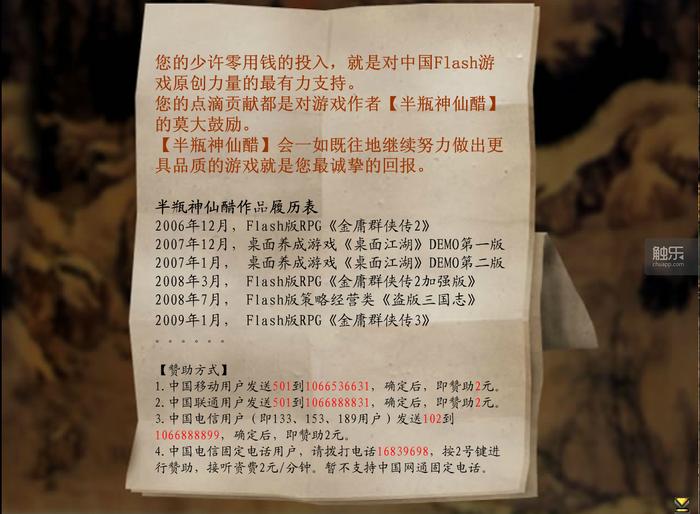 您的少许零用钱的投入，就是对中国Flash游
戏原创力量的最有力支持。
您的点滴贡献都是对游戏作者【半瓶神仙醋】
的莫大鼓励。
【半瓶神仙醋】会一如既往地继续努力做出更
具品质的游戏就是您最诚挚的回报。
半瓶神仙醋作品履历表
2006年12月，Flash版RPG《金庸群侠传2》
2007年12月，桌面养成游戏《桌面江湖》DEMO第一版
2007年1月，桌面养成游戏《桌面江湖》DEMO第二版
2008年3月，Flash版RPG《金庸群侠传2加强版》
2008年7月，Flash版策略经营类《盗版三国志》
2009年1月，Flash版RPG《金庸群侠传3》
。。。。。。
【赞助方式】
1.中国移动用户发送501到1066536631，确定后，即赞助2元。
2.中国联通用户发送501到1066888831，确定后，即赞助2元。
3.中国电信用户（即133、153、189用户）发送102到
1066888899，确定后，即赞助2元。
4.中国电信固定电话用户，请拨打电话16839698，按2号键进
行赞助，接听资费2元/分钟。暂不支持中国网通固定电话。
触乐
chuapp.com